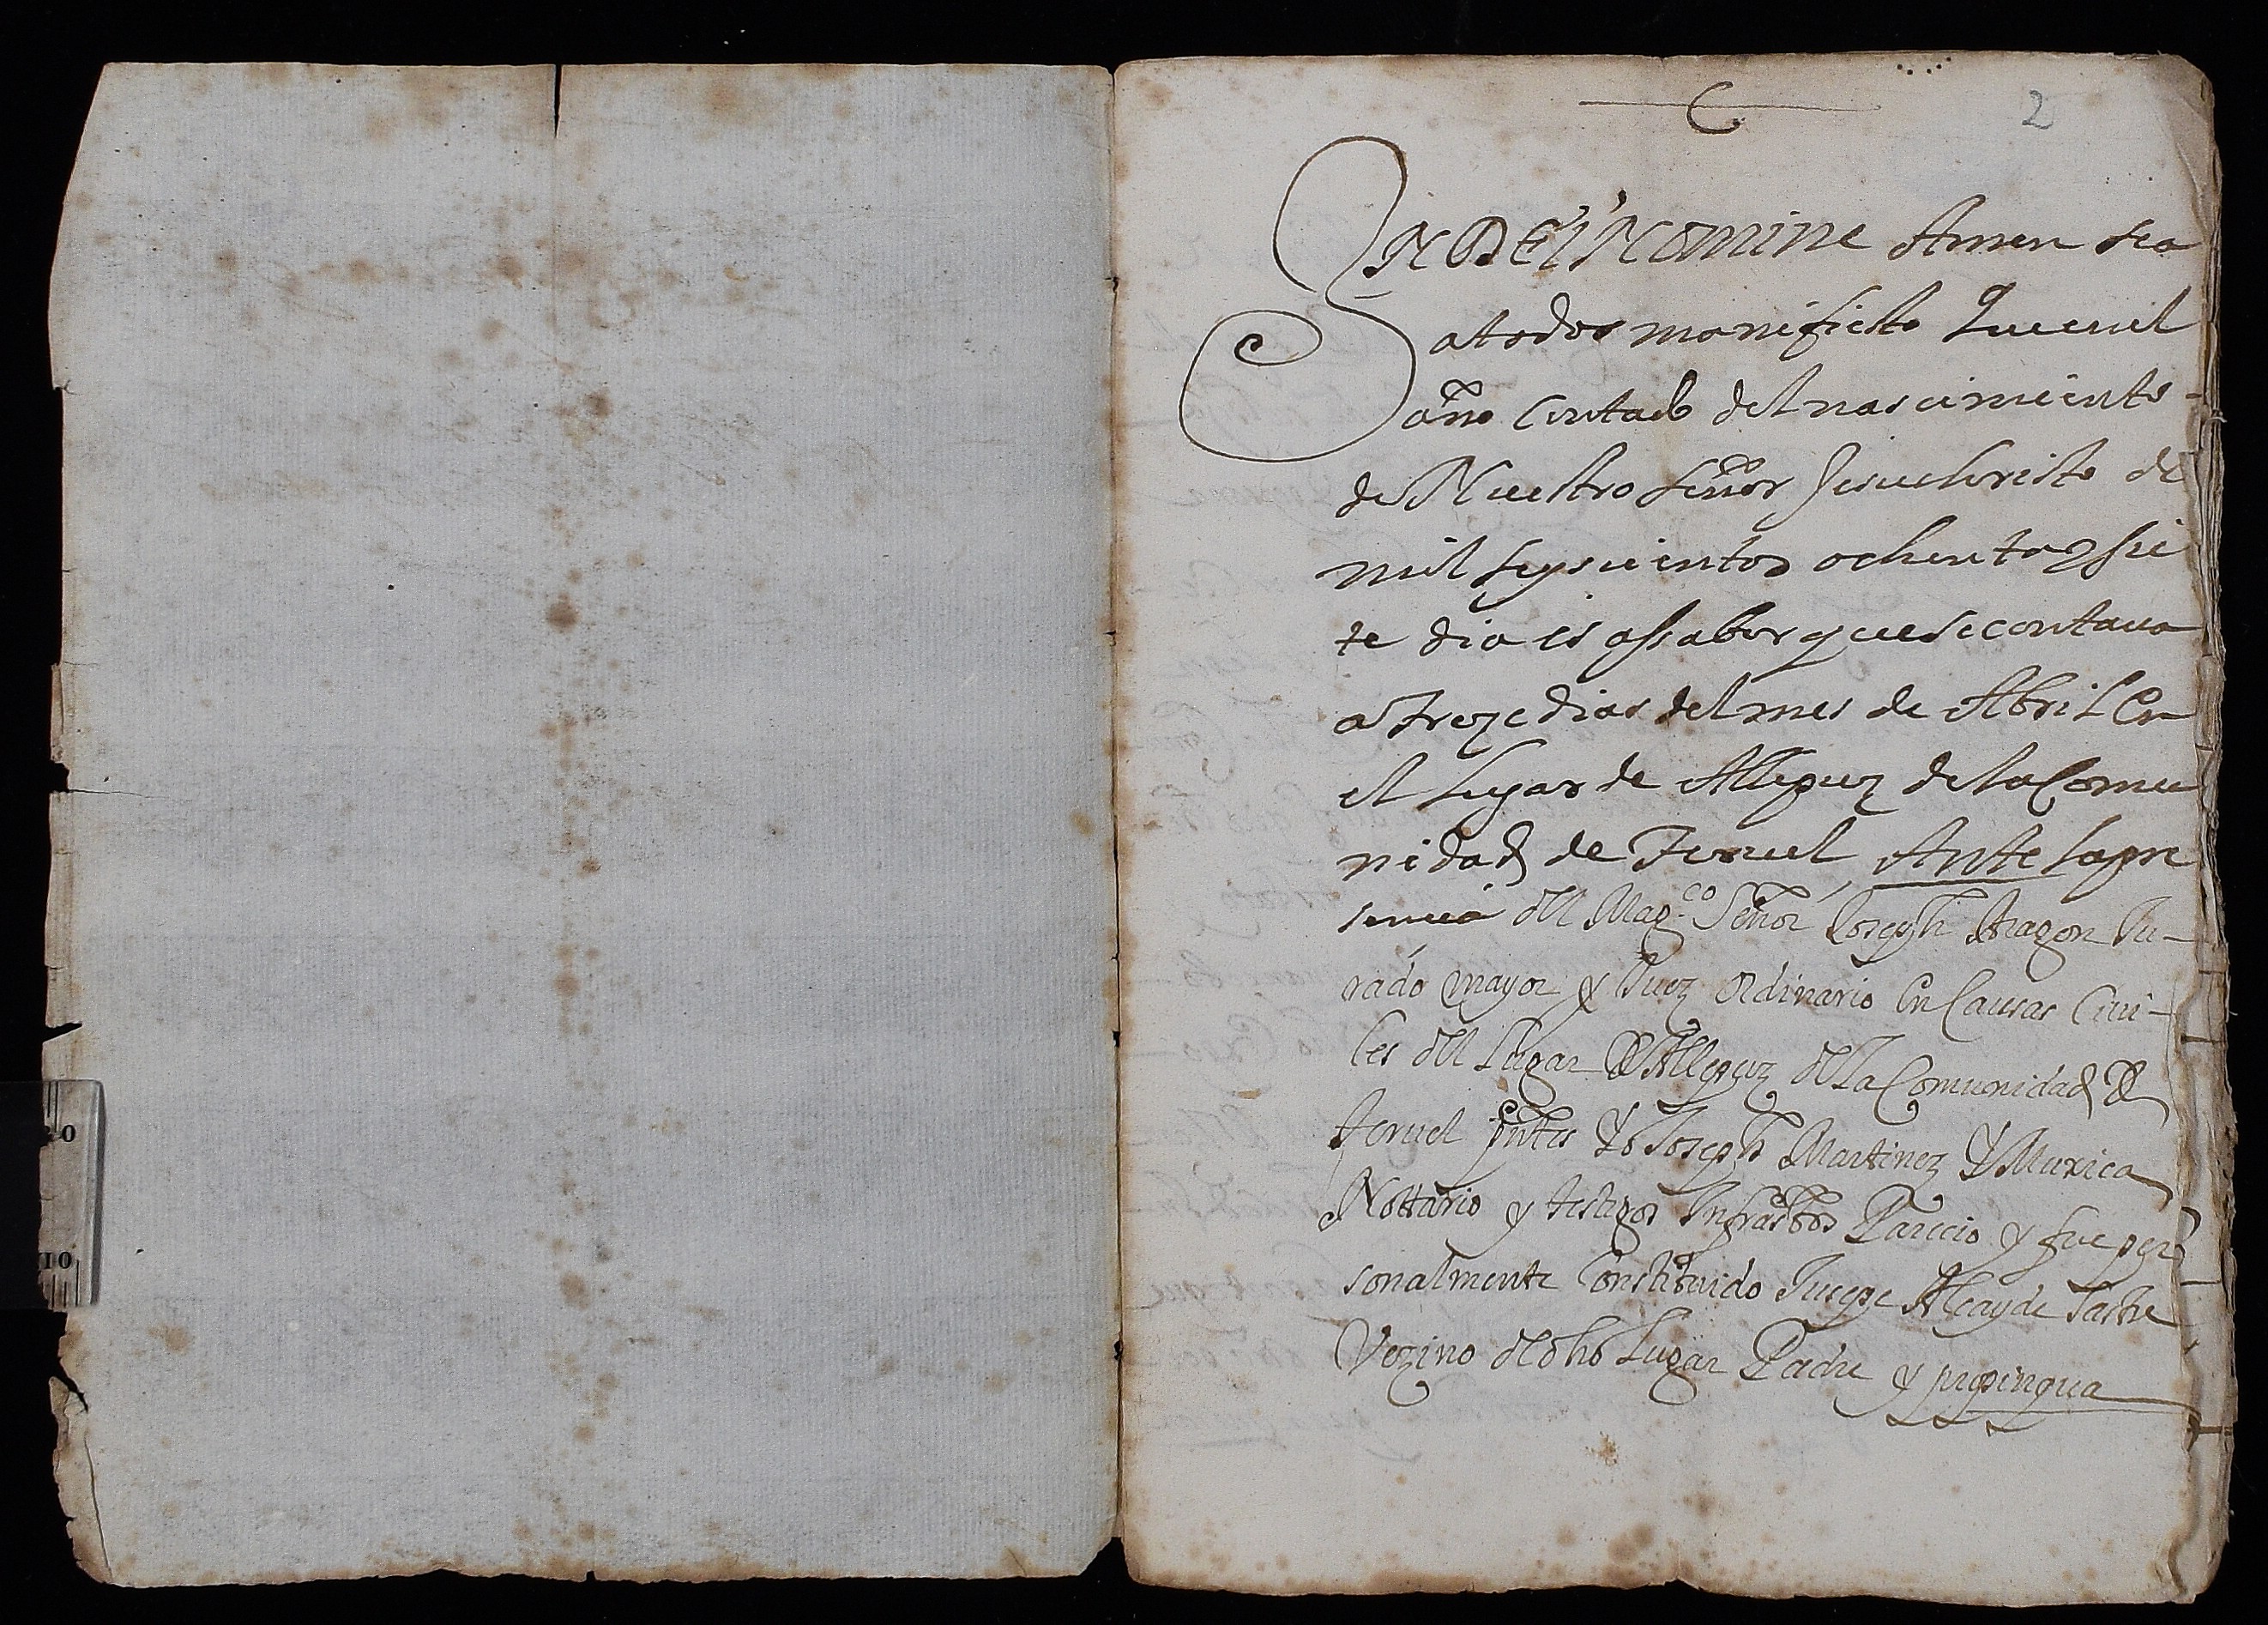 2
IN DEI NOMINE Amen sea
a todos manifiesto Que en el
año Contado del nascimiento
de Nuestro señor Jesuchristo de
mil seyscientos ochenta y sie
te dia es assaber que se contava
a treze dias del mes de Abril En
el lugar de Allepuz de la Comu
nidad de Teruel Ante la pre
sencia del Mag.co Señor Joseph Aragon Ju-
rado mayor y Juez ordinario En Causas Civi-
les del Lugar de Allepuz de la Comunidad de
Teruel pntes Yo Joseph Martinez Y Muxica
Nottario y testigos Infrascttos Parecio y fue per
sonalmente Constituido Jusepe Alcayde sastre
Vezino del dho Lugar Padre y propinqua